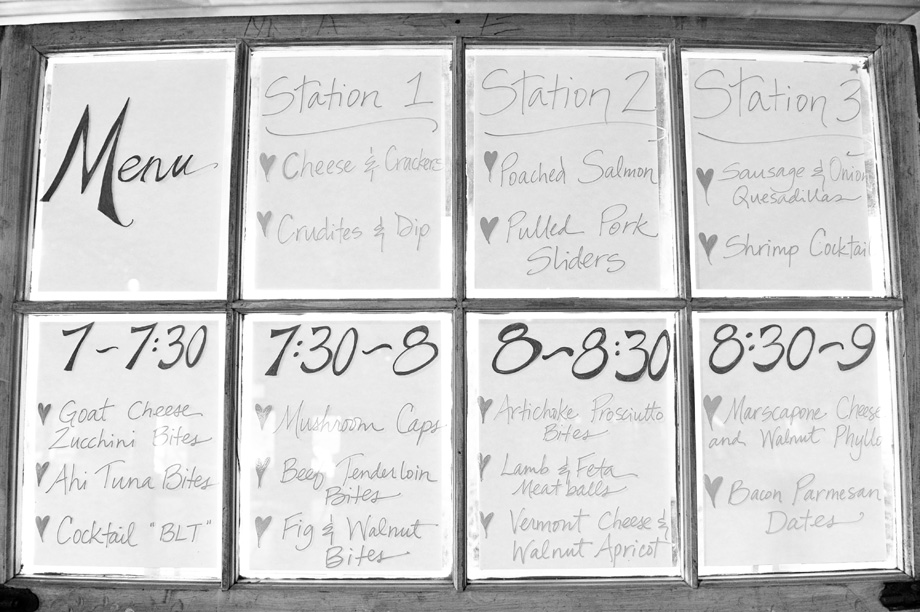 Menu
Station 1
Cheese & Crackers
Crudites & Dip
Station 2
Poached Salmon
Pulled Pork
Sliders
Station 3
Sausage & Onion
Quesadillas
Shrimp Cocktail
7~7:30
Goat Cheese
Zucchini Bites
Ahi Tuna Bites
Cocktail "BLT"
7:30~8
Mushroom Caps
Beef Tenderloin
Bites
Fig & Walnut
Bites
8~8:30
Artichoke Prosciutto
Bites
Lamb & Feta
Meatballs
Vermont Cheese &
Walnut Apricot
8:30~9
Marscapone Cheese
and Walnut Phyllo
Bacon Parmesan
Dates